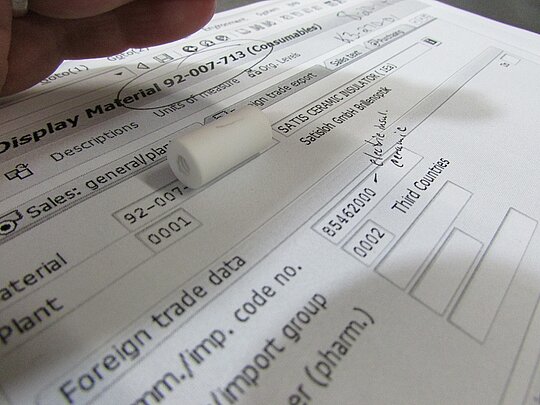 Display Material 92-007-713 (Consumables)
Descriptions
Units of measure
Org. Levels
Sales text
Foreign trade export
Sales: general/plant
92-007-
SATIS CERAMIC INSULATOR (EA)
Satisloh GmbH Brillenoptik
0001
aterial
Plant
electric insul.
ceramic
Foreign trade data
mm./imp. code no.
85462000
/import group
0002
Third Countries
er (pharm.)